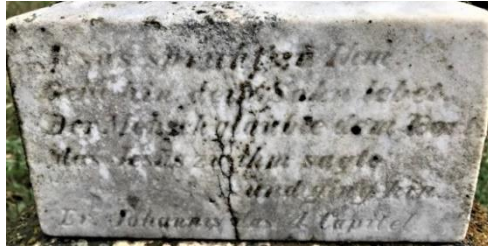 Jesus spricht zu Ihm
Gehe hin dein Sohn lebet.
Der Mensch glaubte dem Wort
Das Jesus zu ihm sagte
und ging hin.
Ev. Johannis das 4 Capitel